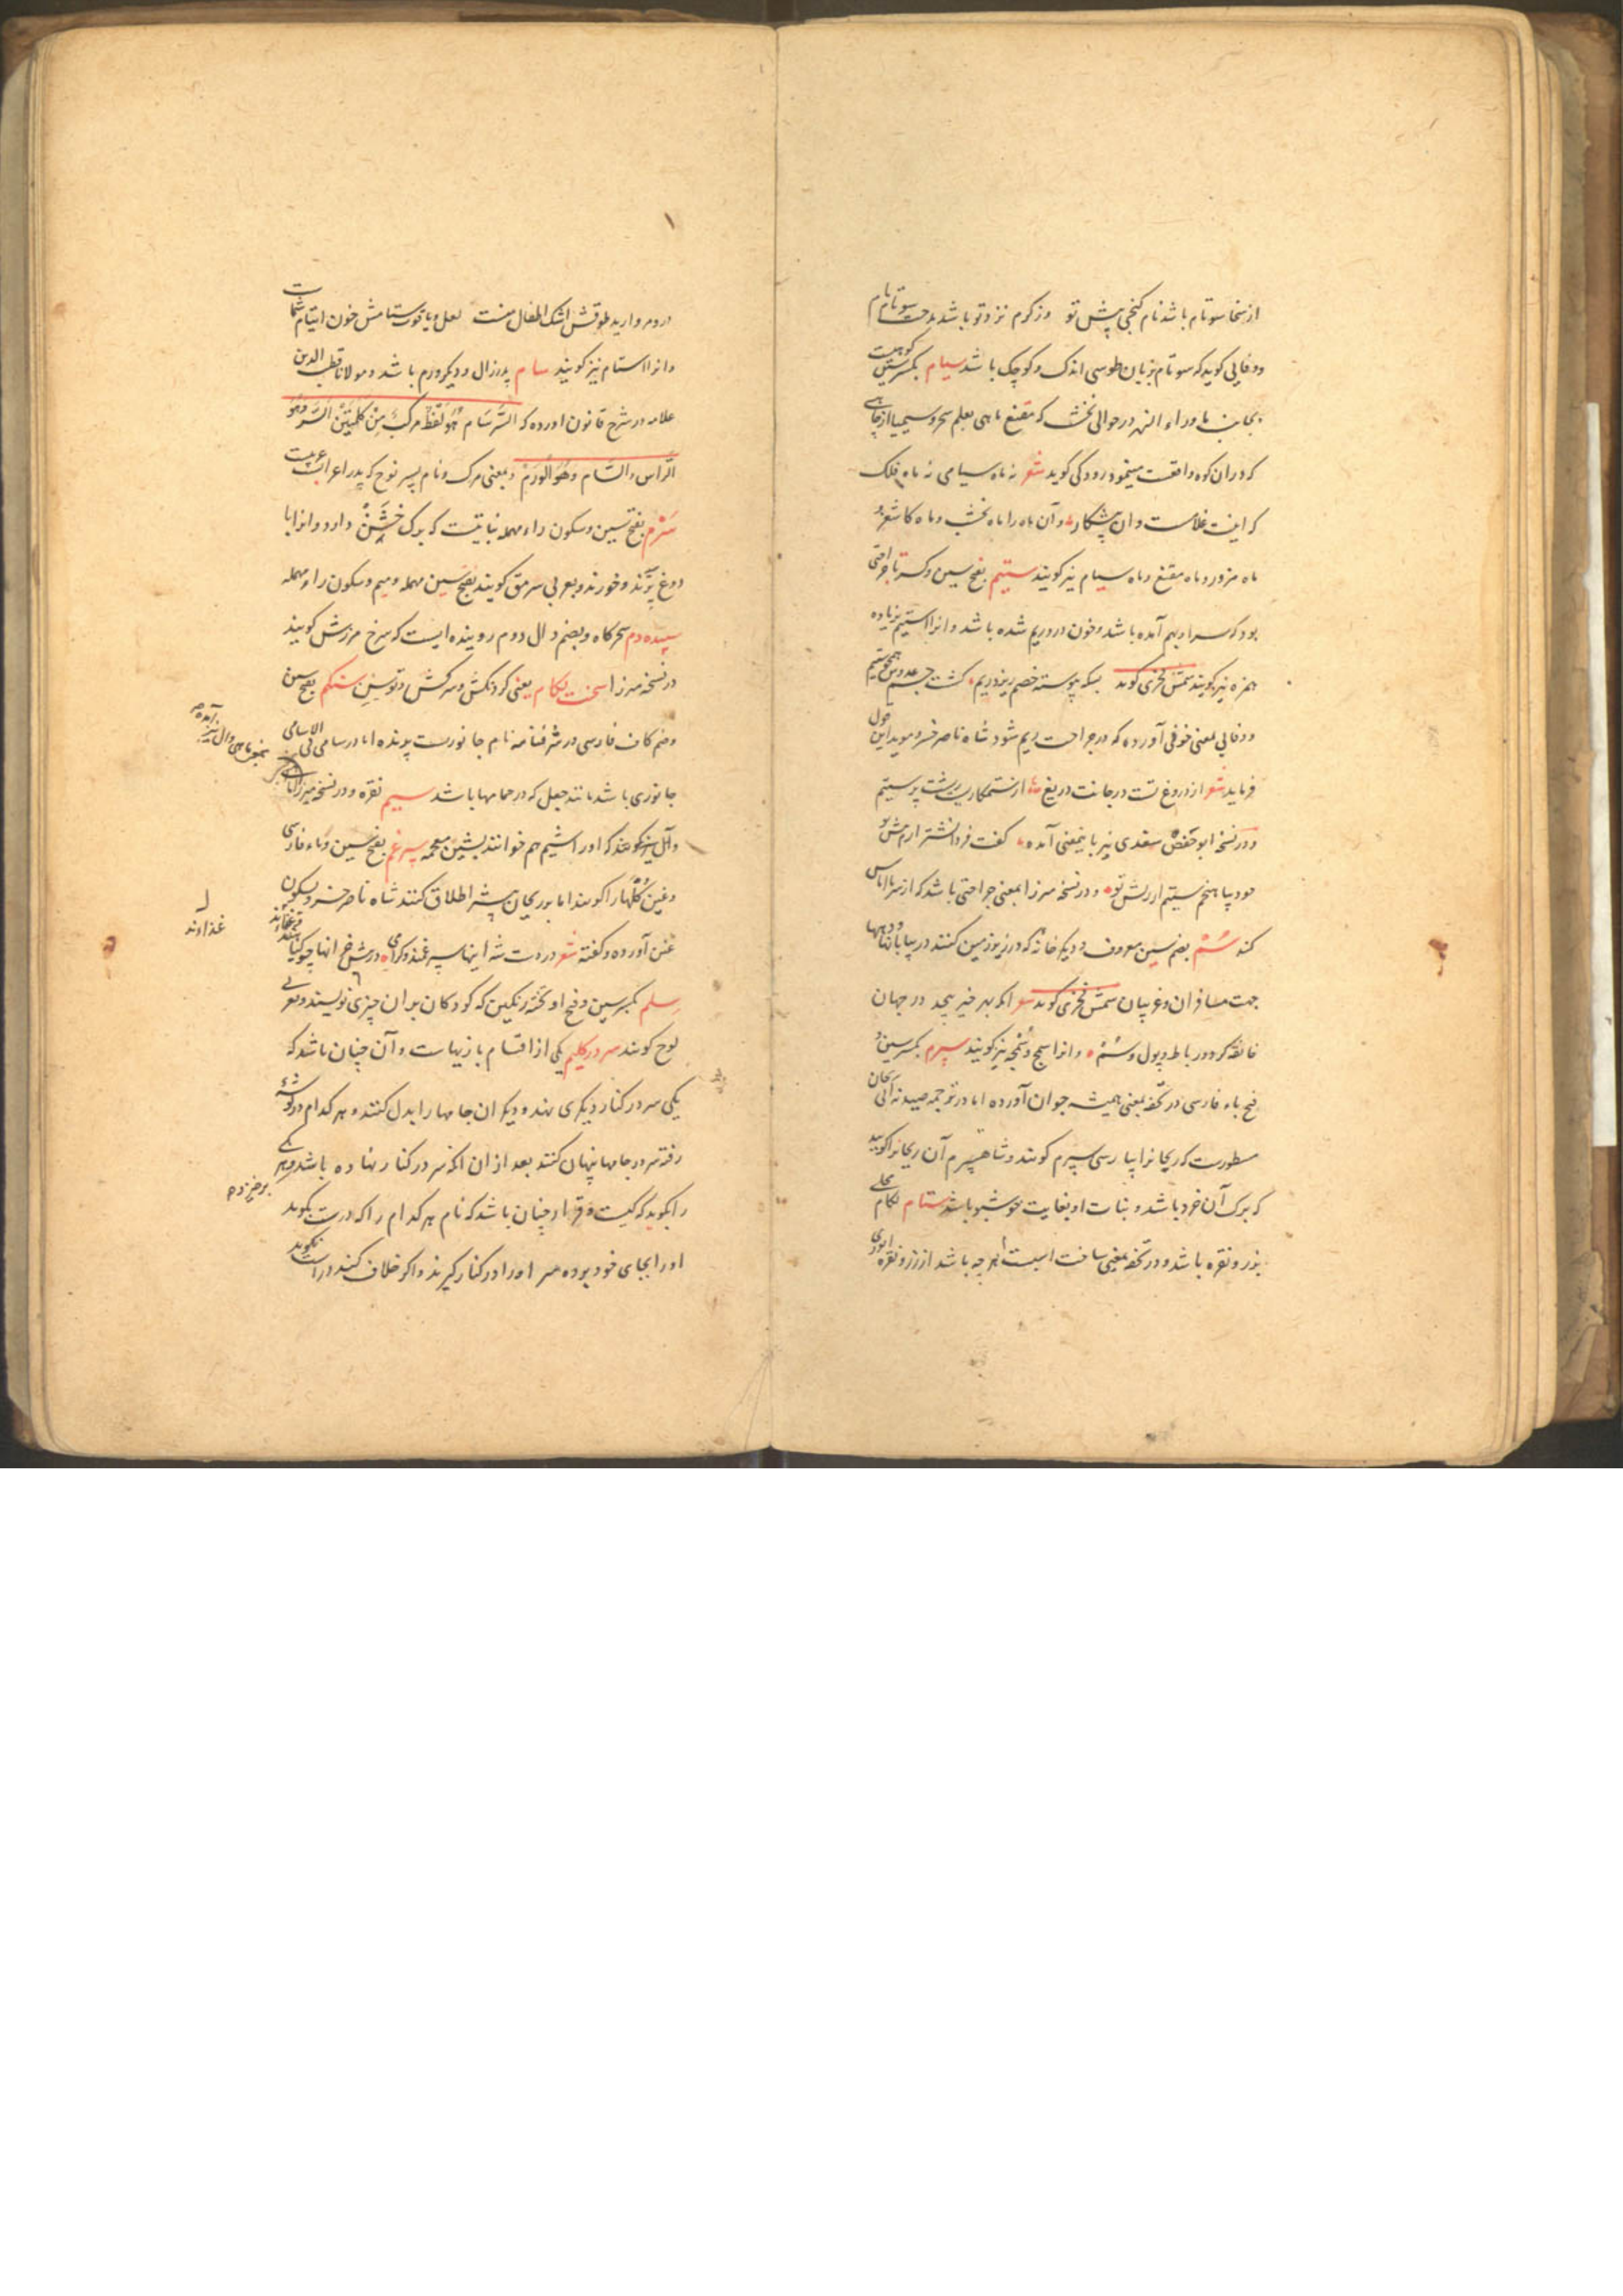 از سخا سوتام باشد نام گنجی پیش تو وز کرم نزد تو باشد مدحت سوتام نام
ووفایی گوید که سوتام بزبان طوسی اندک و کوچک باشد سیام بکسر سین کوهیست
بجانب ماوراء النهر در حوالی نخشب که مقنع ماهی بعلم سحر و سیمیا از چاهی
که در ان کوه واقعست مینمود رودکی گوید شعر نه ماه سیامی نه ماه فلک
که اینت غلامست و آن پیشکار و آن ماه را ماه نخشب و ماه کاشغر و
ماه مزور و ماه مقنع و ماه سیام نیز گویند ستیم بفتح سین و کسر تا جراحتی
بود که سر او بهم آمده باشد و خون در و ریم شده باشد و انرا استیم بزیاده
همزه نیز گویند شمس فخری گوید بسکه پیوسته خصم ریزد ریم گشت چشم عدوش همچو ستیم
ووفایی بمعنی خونی آورده که در جراحت ریم شود شاه ناصر خسرو موید این قول
فرماید شعر از دروغ تست در جانت دریغ از ستمکاریت ریشت پر ستیم
و در نسخه ابو حفص سغدی نیز باینمعنی آمده گفت فردا نشتر ارم پیش تو
خود بیاهنجم ستیم از ریش تو و در نسخه میرزا بمعنی جراحتی باشد که از سرما اماس
کند سُمْ بضم سین معروف و دیگر خانه که در زیر زمین کنند در بیابانها و دهها
جهت مسافران و غریبان شمس فخری گوید شعر انکه بهر خیر بیحد در جهان
خانقه کرد و رباط و پول و سُمْ و انرا سمج و سُمْجه نیز گویند سپرم بکسر سین و
فتح باء فارسی در تحفه بمعنی همیشه جوان آورده اما در ترجمه صیدنه ابی ریحان
مسطورست که ریحانرا بپارسی سپرم گویند و شاهسپرم آن ریحانرا گویند
که برک آن خرد باشد و نبات او بغایت خوشبو باشد ستام لکام محلی
بزر و نقره باشد و در تحفه بمعنی ساخت اسبست هر چه باشد از زر و نقره انوری
در و مروارید طوقش اشک اطفال منست لعل و یاقوت ستامش خون ایتام شماست
وانرا استام نیز گویند سام پدر زال و دیگر ورم باشد و مولانا قطب الدین
علامه در شرح قانون اورده که السَّرْسَام هُوَ لَفْظٌ مرکبٌ مِنْ کَلِمَتَیْنْ السَّرْ وَهُوَ
الرَّاس والسَّام وَهُوَ الْوَرَمْ و بمعنی مرک و نام پسر نوح که پدر اعراب عربیست
سَرْم بفتح سین و سکون راء مهمله نباتیست که برک خَشِنْ دارد و انرا با
دوغ پزند و خورند و بعربی سرمق گویند بفتح سین مهمله و میم و سکون راء مهمله
سپیده دم سحرکاه و بضم دال دوم روینده ایست که سرخ مرزش گویند
در نسخه میرزا سخت لکام یعنی کردنکش و سرکش و توسن ستکم بفتح سین
و ضم کاف فارسی در شرفنامه نام جانوریست پرنده اما در سامی فی الاسامی
جانوری باشد مانند جعل که در حمامها باشد سیم نقره و در نسخه میرزا
وآل نیز گویند که اورا شیم هم خوانند بشین معجمه سپرغم بفتح سین و باء فارسی
و غین کُلّها را گویند اما بوریحان بیشتر اطلاق کنند شاه ناصر خسرو بسکون
غین آورده و گفته شعر
سلم بکسر سین و فتح او تخته رنگین که کودکان بر ان چیزی نویسند و بعربی
لوح گویند سر در کلیم یکی از اقسام بازیهاست و آن چنان باشد که
یکی سر در کنار دیگری نهد و دیگران جامها را بدل کنند و هر کدام در گوشه
رفته سر در جامها پنهان کنند بعد از ان انکه سر در کنار نهاده باشد
را بگوید که کیست و قرار چنان باشد که نام هر کدام را که درست بگوید
اورا بجای خود بوده سر اورا در کنار گیرند و اگر خلاف کند